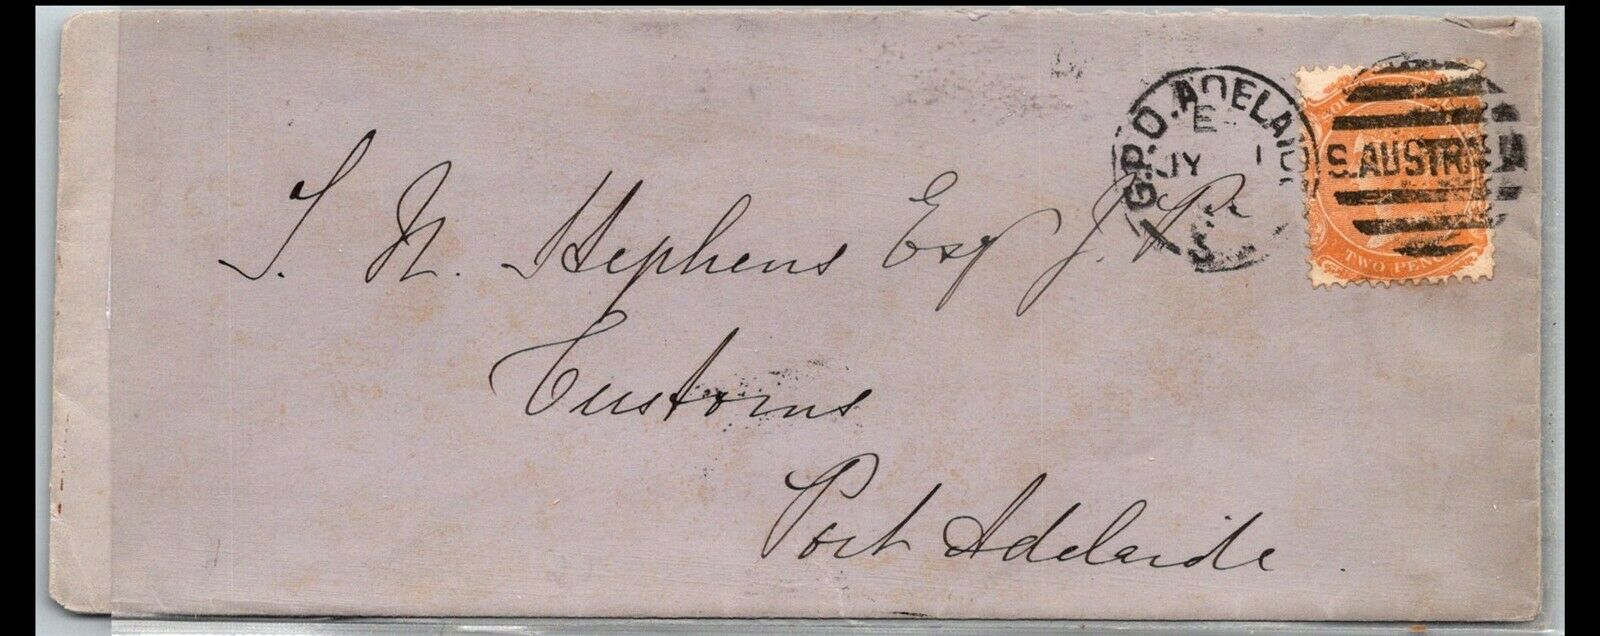 G.P.O. ADELAID
E
JY 1
S. AUSTRALIA
TWO PEN
T. N. Stephens Esq J. P.
Customs
Port Adelaide